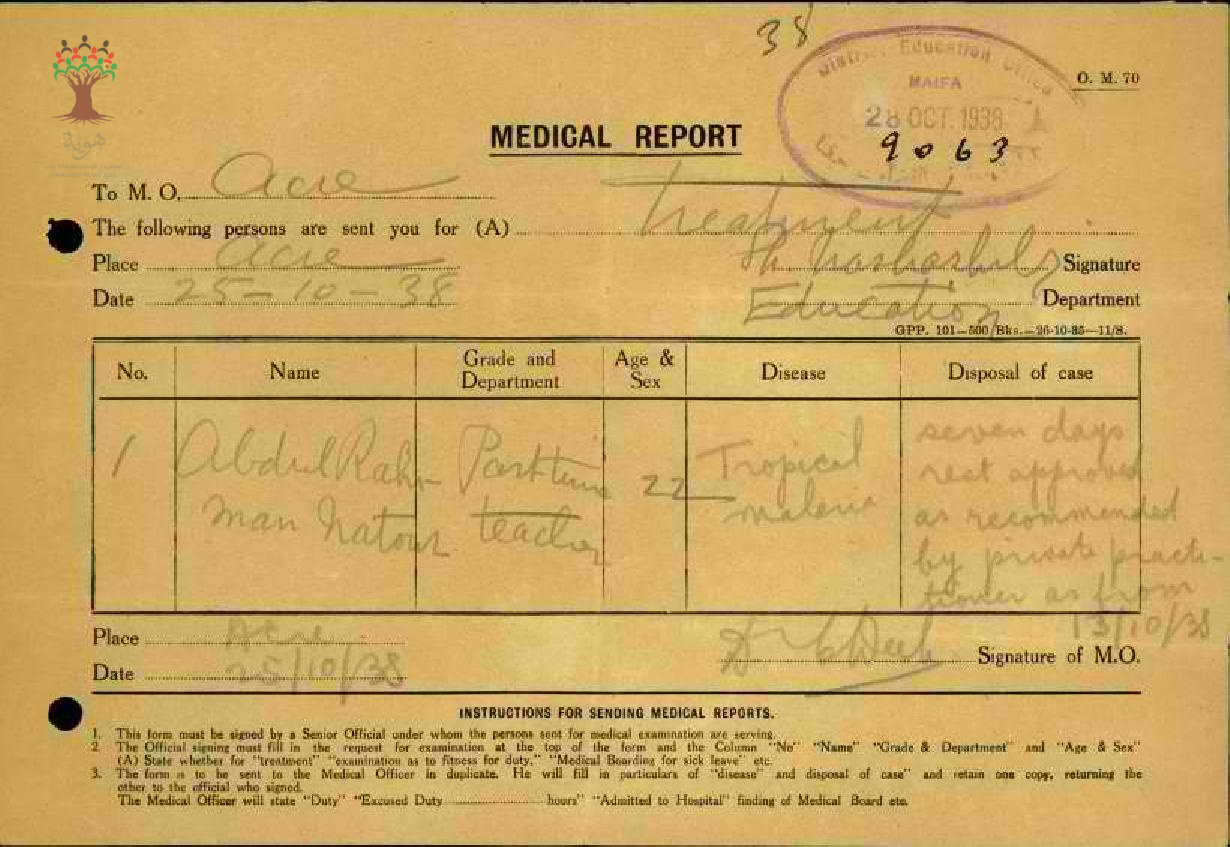 38
District Education Office
HAIFA
O. M. 70
28 OCT. 1938
9063
هوية
MEDICAL REPORT
To M. O. Acre
The following persons are sent you for (A) treatment
Place Acre
Signature
Date 25-10-38
Education Department
GPP. 101—500 Bks.—26-10-35—11/8.
No. Name Grade and Department Age & Sex Disease Disposal of case
1 Abdul Rah- Part time 22 Tropical seven days
man Natour teacher malaria rest approved
as recommended
by private practi-
tioner as from
13/10/38
Place Acre
Signature of M.O.
Date 25/10/38
INSTRUCTIONS FOR SENDING MEDICAL REPORTS.
1. This form must be signed by a Senior Official under whom the persons sent for medical examination are serving.
2. The Official signing must fill in the request for examination at the top of the form and the Column "No" "Name" "Grade & Department" and "Age & Sex"
(A) State whether for "treatment" "examination as to fitness for duty," "Medical Boarding for sick leave" etc.
3. The form is to be sent to the Medical Officer in duplicate. He will fill in particulars of "disease" and disposal of case" and retain one copy, returning the
other to the official who signed.
The Medical Officer will state "Duty" "Excused Duty ........ hours" "Admitted to Hospital" finding of Medical Board etc.